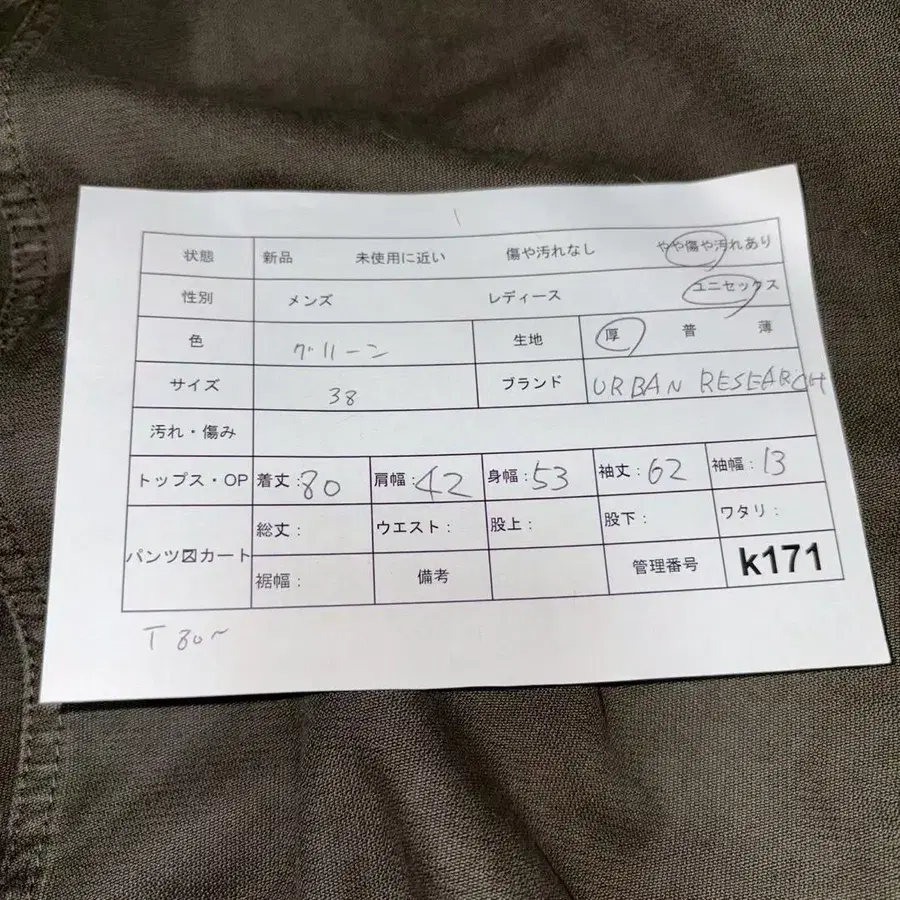 状態 新品 未使用に近い 傷や汚れなし やや傷や汚れあり
性別 メンズ レディース ユニセックス
色 グリーン 生地 厚 普 薄
サイズ 38 ブランド URBAN RESEARCH
汚れ・傷み
トップス・OP 着丈:80 肩幅:42 身幅:53 袖丈:62 袖幅:13
パンツ図カート 総丈: ウエスト: 股上: 股下: ワタリ:
裾幅: 備考 管理番号 k171
T 80~